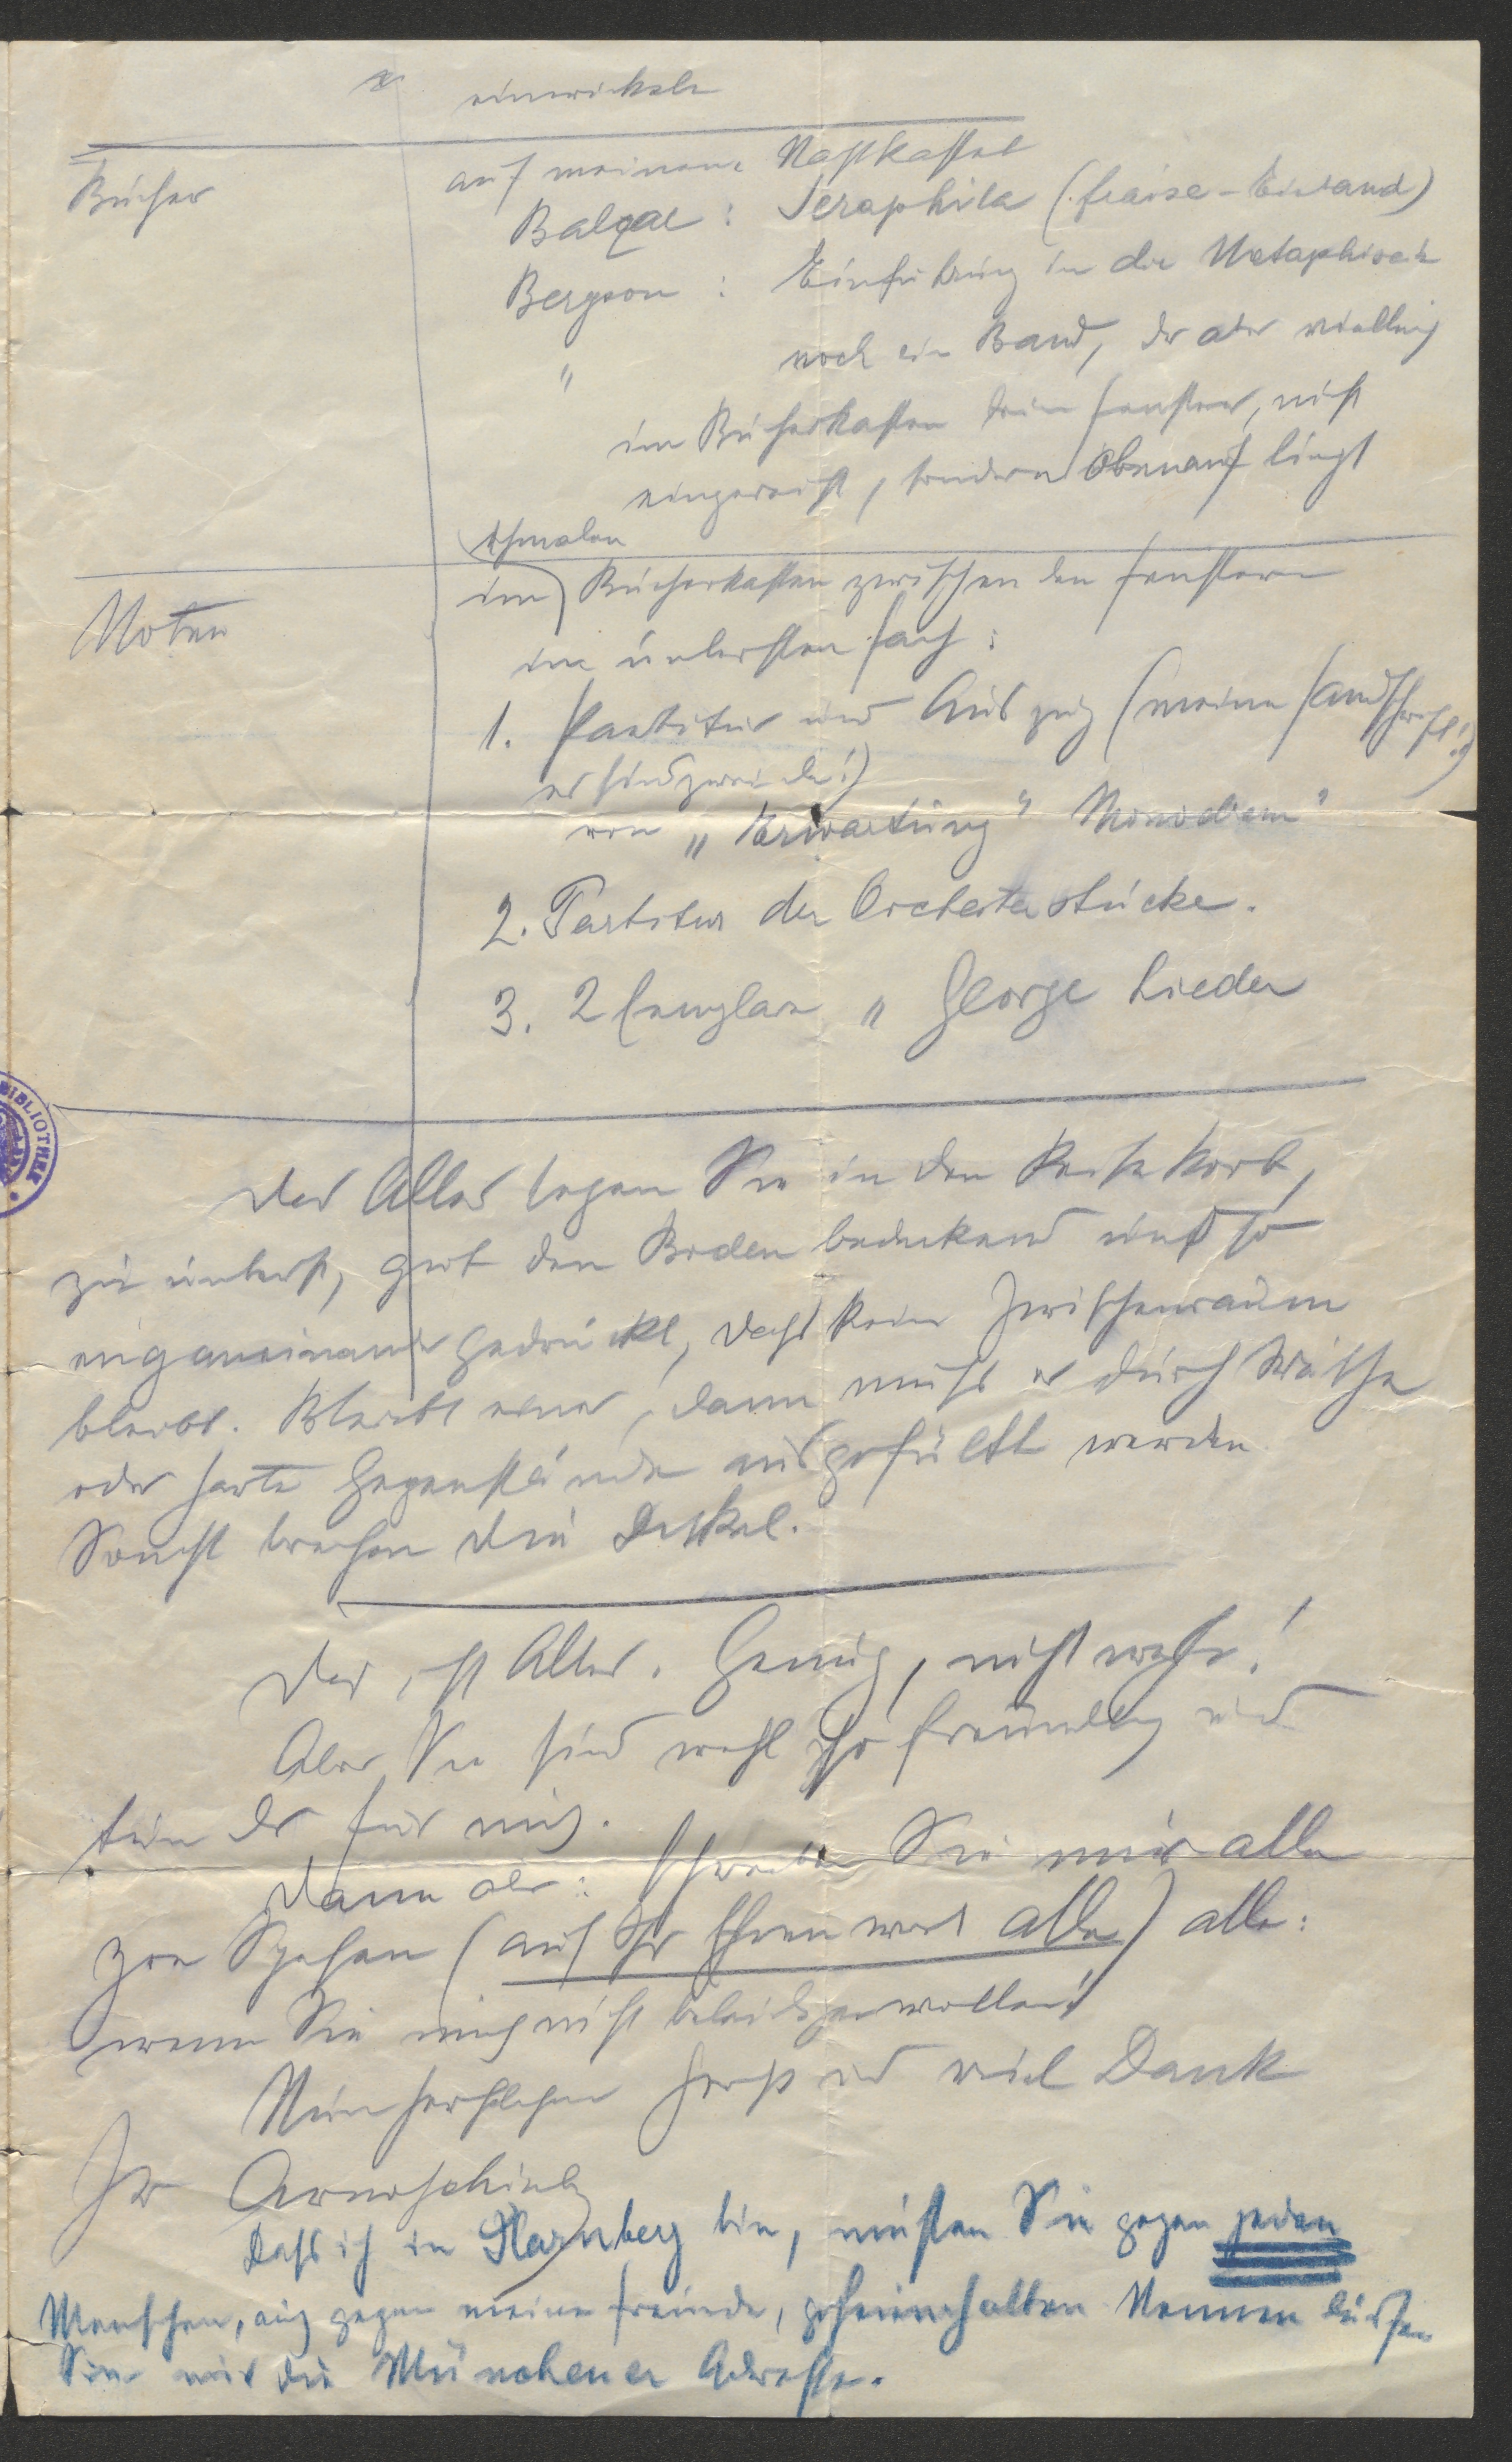 einwickeln
Bücher
auf meinem Nachtkastel
Balzac: Seraphita (fraise-Einband)
Bergson: Einführung in die Metaphisik
" noch ein Band, der aber vielleicht
im Bücherkasten beim Fenster, nicht
eingereiht, sondern obenauf liegt
Noten
schmalen
im Bücherkasten zwischen den Fenstern
im untersten Fach:
1. Partitur und Auszug (meine Handschrift!)
es sind zwei da!)
von „Erwartung" Monodram"
2. Partitur der Orchesterstücke.
3. 2 Exemplare „George Lieder
BIBLIOTHEK
Das Alles legen Sie in den Reisekorb,
zu unterst, gut den Boden bedeckend und so
eng aneinander gedrückt, dass kein Zwischenraum
bleibt. Bleibt einer, dann muss er durch Wäsche
oder harte Gegenstände ausgefüllt werden
Sonst brechen die Deckel.
Das ist Alles. Genug, nicht wahr!
Aber Sie sind wohl so freundlich und
tun das für mich.
Dann aber: schreiben Sie mir alle
Spesen (auf Ihr Ehrenwort alle) alle:
wenn Sie mich nicht beleidigen wollen!
Nun herzlichen Gruß und viel Dank
Ihr Arnold Schönberg
Dass ich in Starnberg bin, müssen Sie gegen jeden
Menschen, auch gegen meine Freunde, geheimhalten Nennen dürfen
Sie nur die Münchener Adresse.